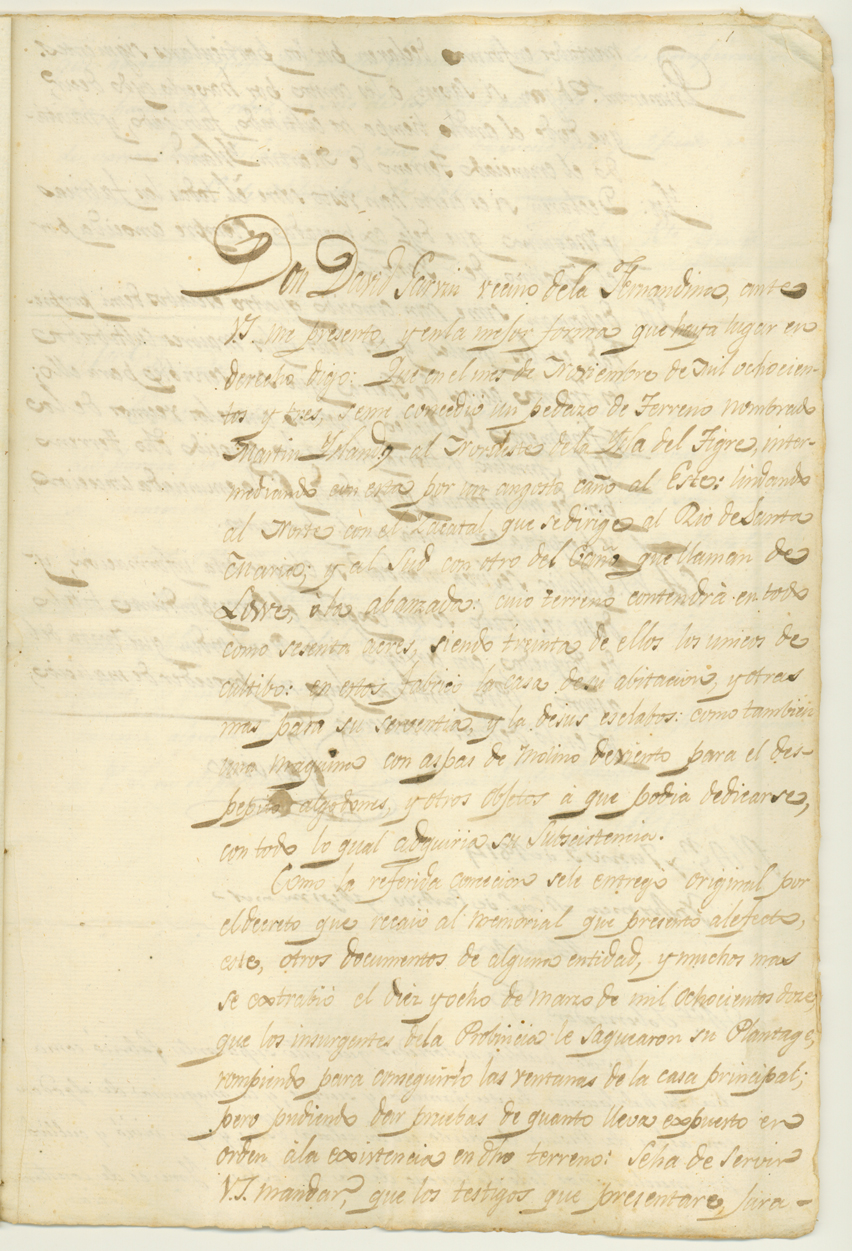 Don David Garvin vecino dela Fernandina, ante
V.S. me presento, y en la mejor forma que haya lugar en
derecho digo: Que en el mes de Noviembre de mil ochocien-
tos y tres, seme concedió un pedazo de Terreno nombrado
Martin Yslandº al Nordeste de la Ysla del Tigre, inter-
mediando con esta por un angosto caño al Este: lindando
al Norte con el Zacatal que se dirige al Rio de Santa
Maria; y al Sud con otro del Caño que llaman de
Lowe, ó la abanzada: cuio terreno contendrà en todo
como sesenta acres, siendo treinta de ellos los unicos de
cultibo: en estos fabricó la casa desu abitacion, y otras
mas para su serventia, y la desus esclabos: como tambien
una maquina con aspas de Molino deviento para el des-
pepito algodones, y otros objetos à que podia dedicarse,
con todo lo qual adquiria su Subsistencia.
Como la referida concecion sele entregó original por
el decreto que recaió al memorial que presentó alefecto,
este, otros documentos de alguna entidad, y muchos mas
se extrabió el diez yocho de marzo de mil ochocientos doze,
que los insurgentes dela Probincia le saquearon su Plantage,
rompiendo para conseguirlo las ventanas de la casa principal;
pero pudiendo dar pruebas de quanto lleva expuesto en
orden àla existencia en dho terreno: Seha de servir
V.S. mandar, que los testigos que presentare, jura-